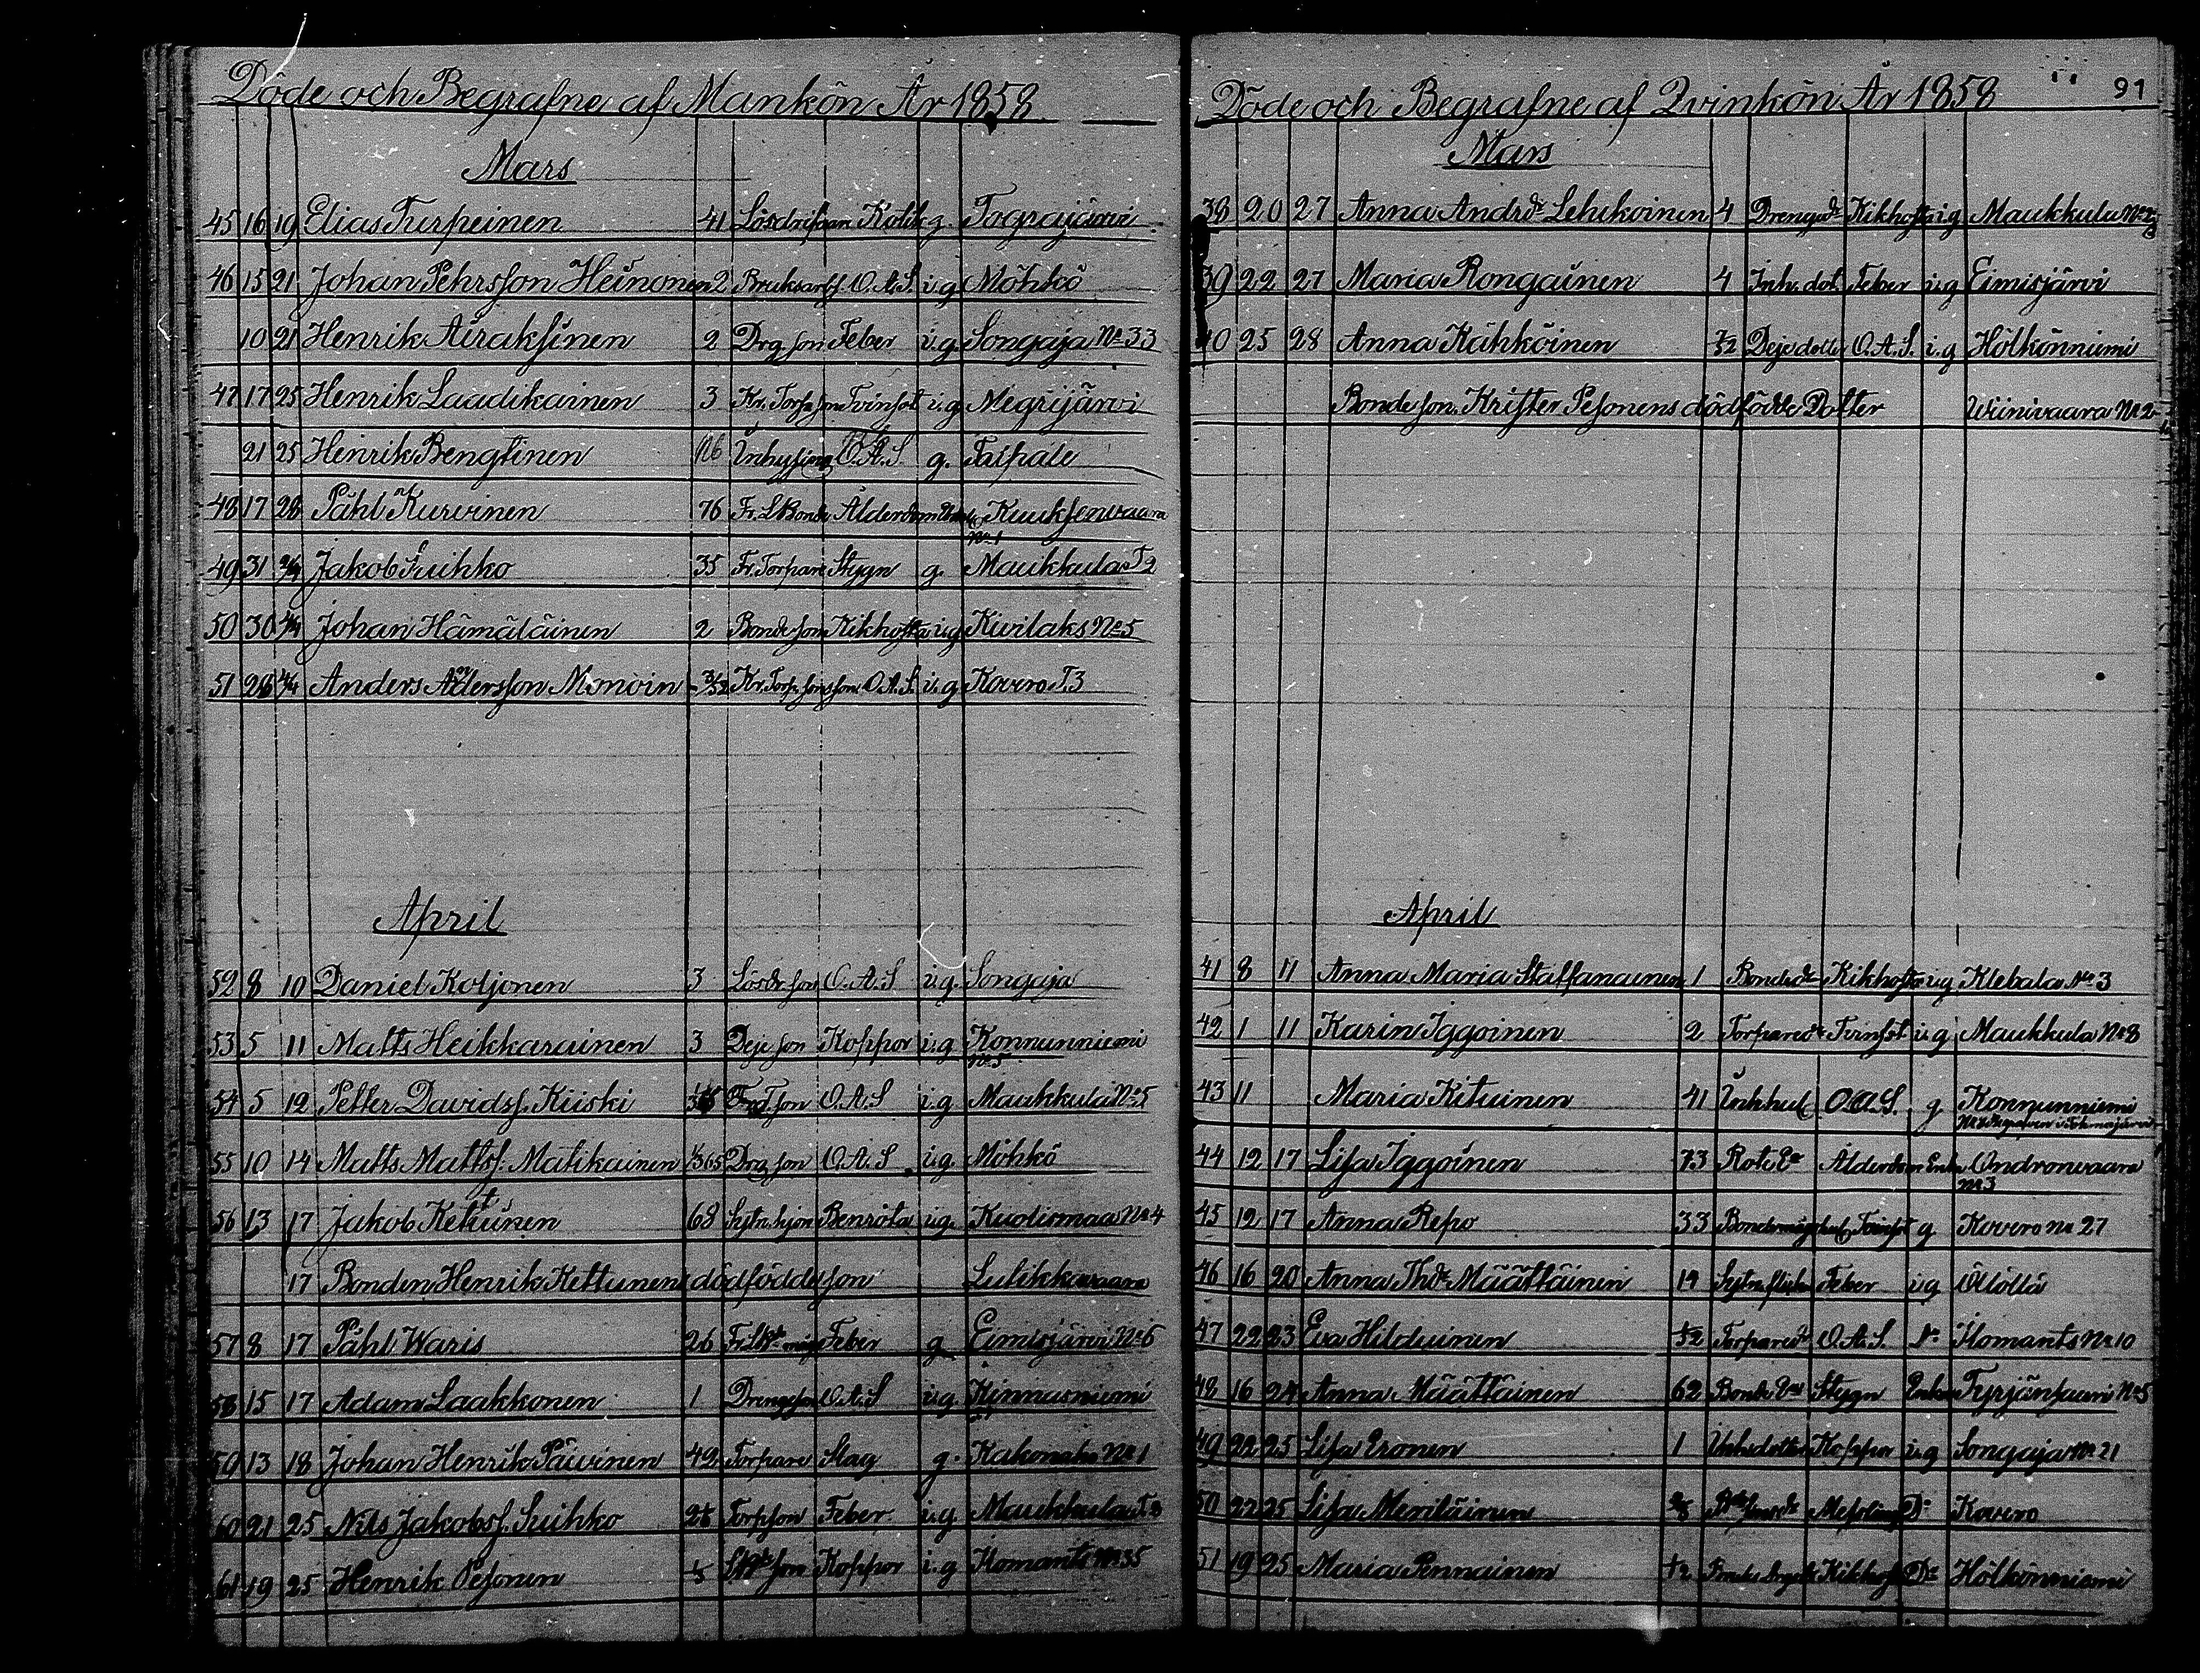 Döde och Begrafne af Mankön År 1858
Mars
45 16 19 Elias Turpeinen 41 Kolik g. Tograjärvi
46 15 21 Johan Pehrsson Heinonen 2 O.A.S. i.g Möhkö
10 21 Henrik Airaksinen 2 Drg son Feber i.g Songaja No 33
47 17 25 Henrik Laadikainen 3 Kr. Torp. son Tvinsot i.g Megrijärvi
21 25 Henrik Bengtinen Inhysing O.A.S. g. Taipale
48 17 28 Påhl Kurvinen 76 Fr. L Bonde Ålderdom Kuuksenvaara
No 1
49 31 Jakob Suihko 35 Fr. Torpare Stygn g. Maukkula T 2
50 30 Johan Hämäläinen 2 Bonde son Kikhosta i.g Kivilaks No 5
51 26 Anders Andersson Mononin 3/52 Kr. Torp. sons son O.A.S. i.g Kovero T.3
April
52 8 10 Daniel Koljonen 3 Lösdr. son O.A.S i.g. Songaja
53 5 11 Matts Heikkarainen 3 Deje son Koppor i.g Konnunniemi
No 5
54 5 12 Petter Davidss. Kiiski son O.A.S i.g Maukkula No 5
55 10 14 Matts Mattss. Matikainen 1/365 Drg son O.A.S i.g Möhkö
56 13 17 Jakob Kettunen 68 Sytn. hjon Benröta i.g. Kuolismaa No 4
17 Bonden Henrik Kettunens dödfödde son Lulikkavaara
57 8 17 Påhl Waris 26 Feber g Eimisjärvi No 6
58 15 17 Adam Laakkonen 1 Drengeson O.A.S i.g. Kinnasniemi
59 13 18 Johan Henrik Päivinen 49 Torpare Slag g. Kakonaho No 1
60 21 25 Nils Jakobss. Suihko Torpson Feber i.g. Maukkula T 2
61 19 25 Henrik Pesonen 1/5 son Koppor i.g Ilomants No 35
Döde och Begrafne af Qvinkön År 1858 91
Mars
38 20 27 Anna Andrdr Lehikoinen 4 Drengsdr Kikhosta i.g Maukkula
39 22 27 Maria Rongainen 4 Inh. dot Feber i.g Eimisjärvi
40 25 28 Anna Kähköinen Deje dotter O.A.S. i.g Hölkönniemi
Bonde son Krister Pesonens dödfödde Dotter Wiinivaara No 2
April
41 8 11 Anna Maria Staffanainen 1 Bondedr Kikhosta i.g Klebala No 3
42 1 11 Karin Iggoinen 2 Torparedr Tvinsot i.g Maukkula No 8
43 11 Maria Kituinen 41 Inhhu O.A.S. g Konnunniemi
44 12 17 Lisa Iggoinen 73 Rote Ea Ålderdom Enka Ondronvaara
No 3
45 12 17 Anna Repo 33 Tvinsot g Kovero No 27
46 16 20 Anna Thdr Määttäinen 14 Sytn. flicka Feber i.g Ölöllä
47 22 23 Eva Hilduinen 1/12 Torparedr O.A.S. Ilomants No 10
48 16 24 Anna Määttäinen 62 Bonde Stygn Enka Tyrjänsaari No 5
49 22 25 Lisa Eronen 1 Inhdotter Koppor i.g Songaja No 21
50 22 25 Lisa Meriläinen Messling Do Kovero
51 19 25 Maria Pennainen 1/2 Kikhosta Do Hölkönniemi